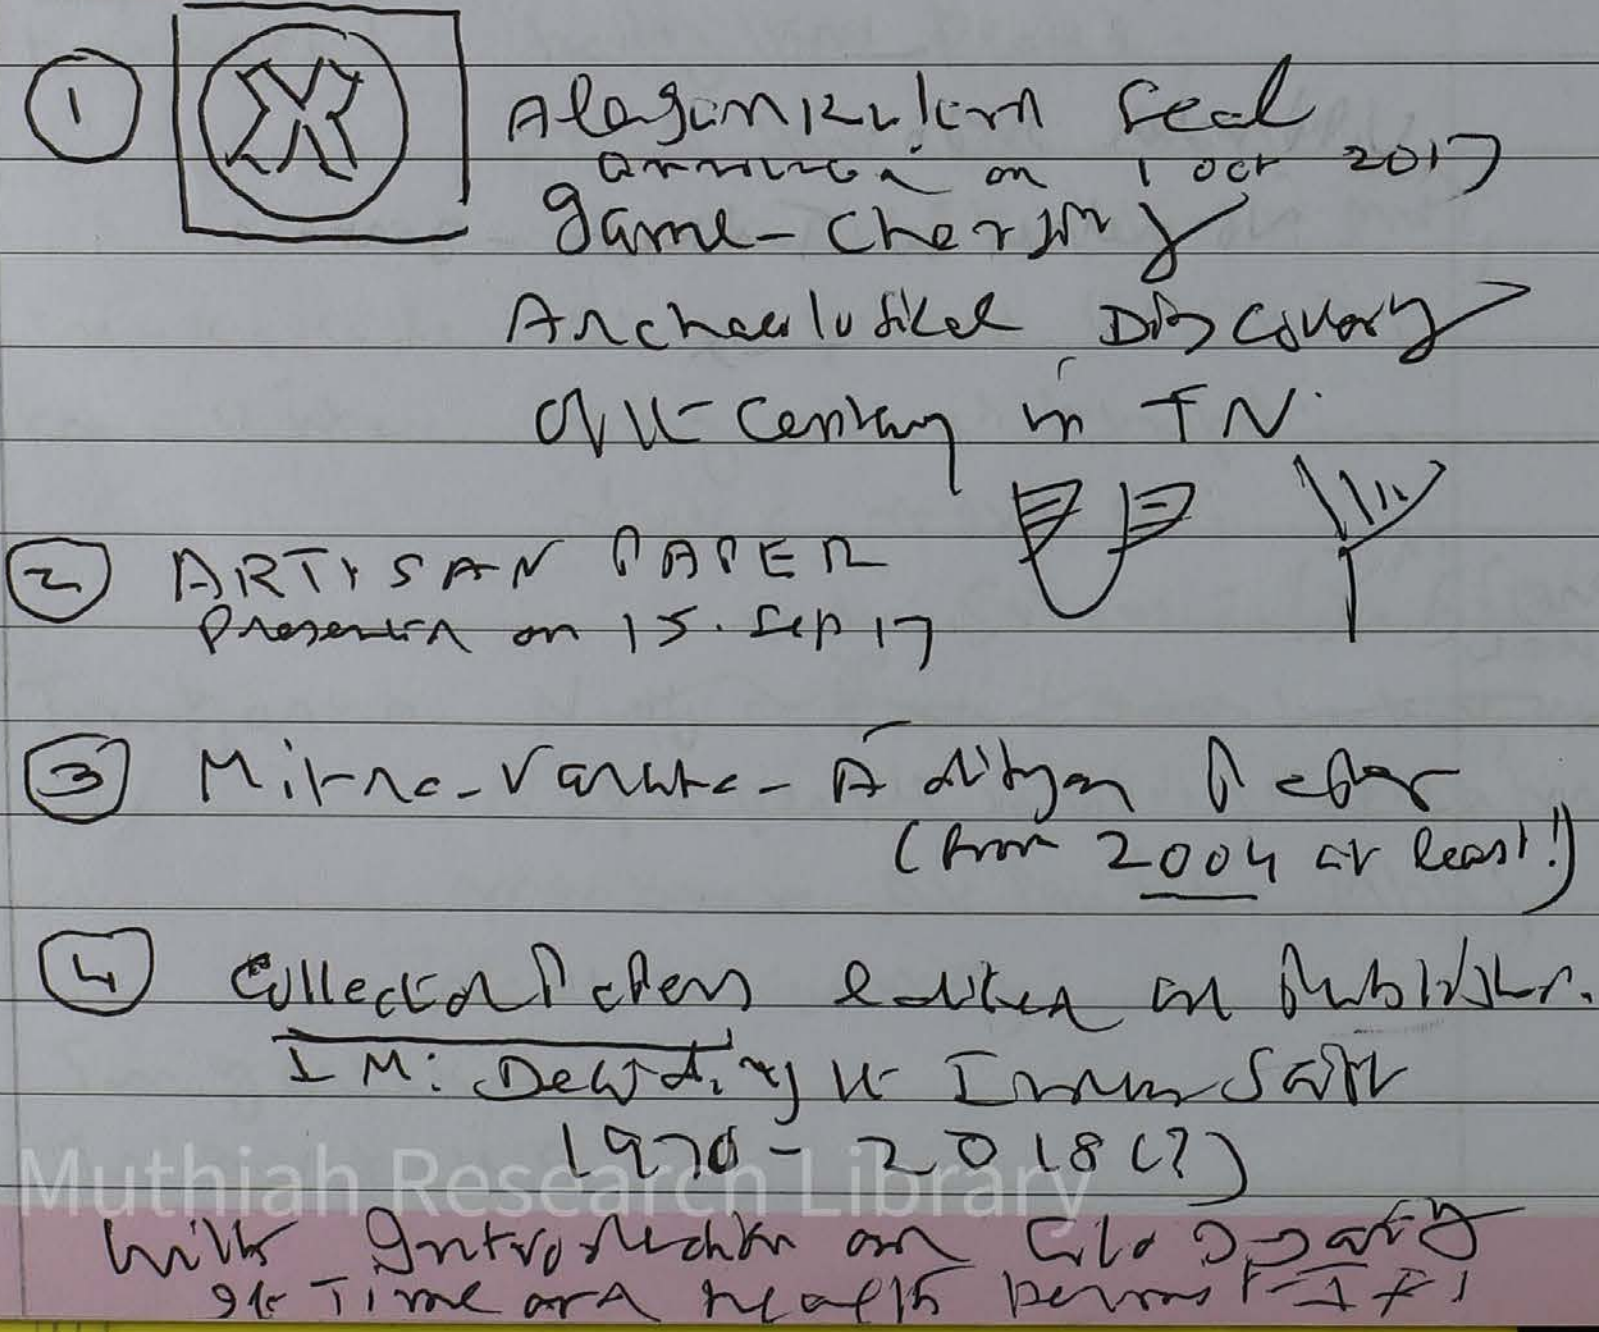 1 Alagankulam Seal
announced on 1 Oct 2017
game-changing
Archaeological Discovery
of the Century in TN.
2 ARTISAN PAPER
Presented on 15. Sep 17
3 Mitra-Varuna-Aditya Paper
(from 2004 at least!)
4 Collected Papers edited and Published.
IM: the Indus Script
1970-2018 (?)
Muthiah Research Library
With Introduction and Glossary
If Time and health permit